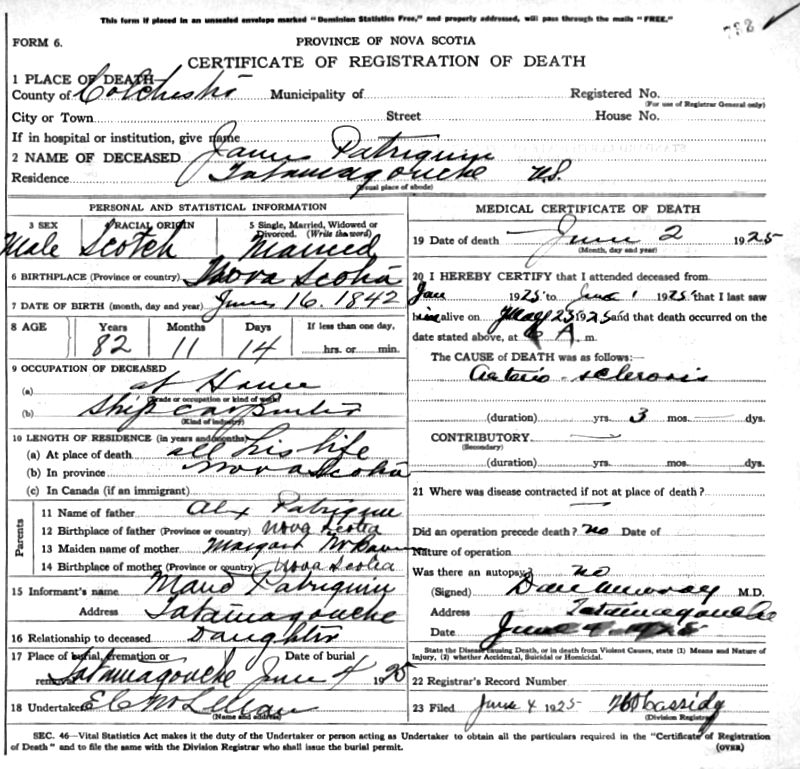 This form if placed in an unsealed envelope marked "Dominion Statistics Free," and properly addressed, will pass through the mails "FREE."
782
FORM 6.
PROVINCE OF NOVA SCOTIA
CERTIFICATE OF REGISTRATION OF DEATH
1 PLACE OF DEATH
County of Colchester Municipality of Registered No.
(For use of Registrar General only)
City or Town Street House No.
If in hospital or institution, give name
2 NAME OF DECEASED James Patriquin
Residence Tatamagouche N.S.
(Usual place of abode)
PERSONAL AND STATISTICAL INFORMATION
3 SEX RACIAL ORIGIN 5 Single, Married, Widowed or Divorced. (Write the word)
Male Scotch Married
6 BIRTHPLACE (Province or country) Nova Scotia
7 DATE OF BIRTH (month, day and year) June 16. 1842
8 AGE Years Months Days If less than one day,
82 11 14 hrs. or min.
9 OCCUPATION OF DECEASED
(a) at Home
(Trade or occupation or kind of work)
(b) Ship carpenter
(Kind of industry)
10 LENGTH OF RESIDENCE (in years and months)
(a) At place of death all his life
(b) In province Nova Scotia
(c) In Canada (if an immigrant)
Parents
11 Name of father Alex Patriquin
12 Birthplace of father (Province or country) Nova Scotia
13 Maiden name of mother Margaret
14 Birthplace of mother (Province or country) Nova Scotia
15 Informant's name Maud Patriquin
Address Tatamagouche
16 Relationship to deceased Daughter
17 Place of burial, cremation or removal Date of burial
Tatamagouche June 4 1925
18 Undertaker
(Name and address)
MEDICAL CERTIFICATE OF DEATH
19 Date of death June 2 1925
(Month, day and year)
20 I HEREBY CERTIFY that I attended deceased from
Jan 1925 to June 1 1925 that I last saw
him alive on May 23 1925 and that death occurred on the
date stated above, at 6 A. m.
The CAUSE of DEATH was as follows:
Arterio-sclerosis
(duration) yrs. 3 mos. dys.
CONTRIBUTORY
(Secondary)
(duration) yrs. mos. dys.
21 Where was disease contracted if not at place of death?
Did an operation precede death? no Date of
Nature of operation
Was there an autopsy? no
(Signed) Dan Murray M.D.
Address Tatamagouche
Date June 4 1925
State the Disease causing Death, or in death from Violent Causes, state (1) Means and Nature of
Injury, (2) whether Accidental, Suicidal or Homicidal.
22 Registrar's Record Number
23 Filed June 4 1925 Cassidy
(Division Registrar)
SEC. 46—Vital Statistics Act makes it the duty of the Undertaker or person acting as Undertaker to obtain all the particulars required in the "Certificate of Registration
of Death" and to file the same with the Division Registrar who shall issue the burial permit.
(OVER)